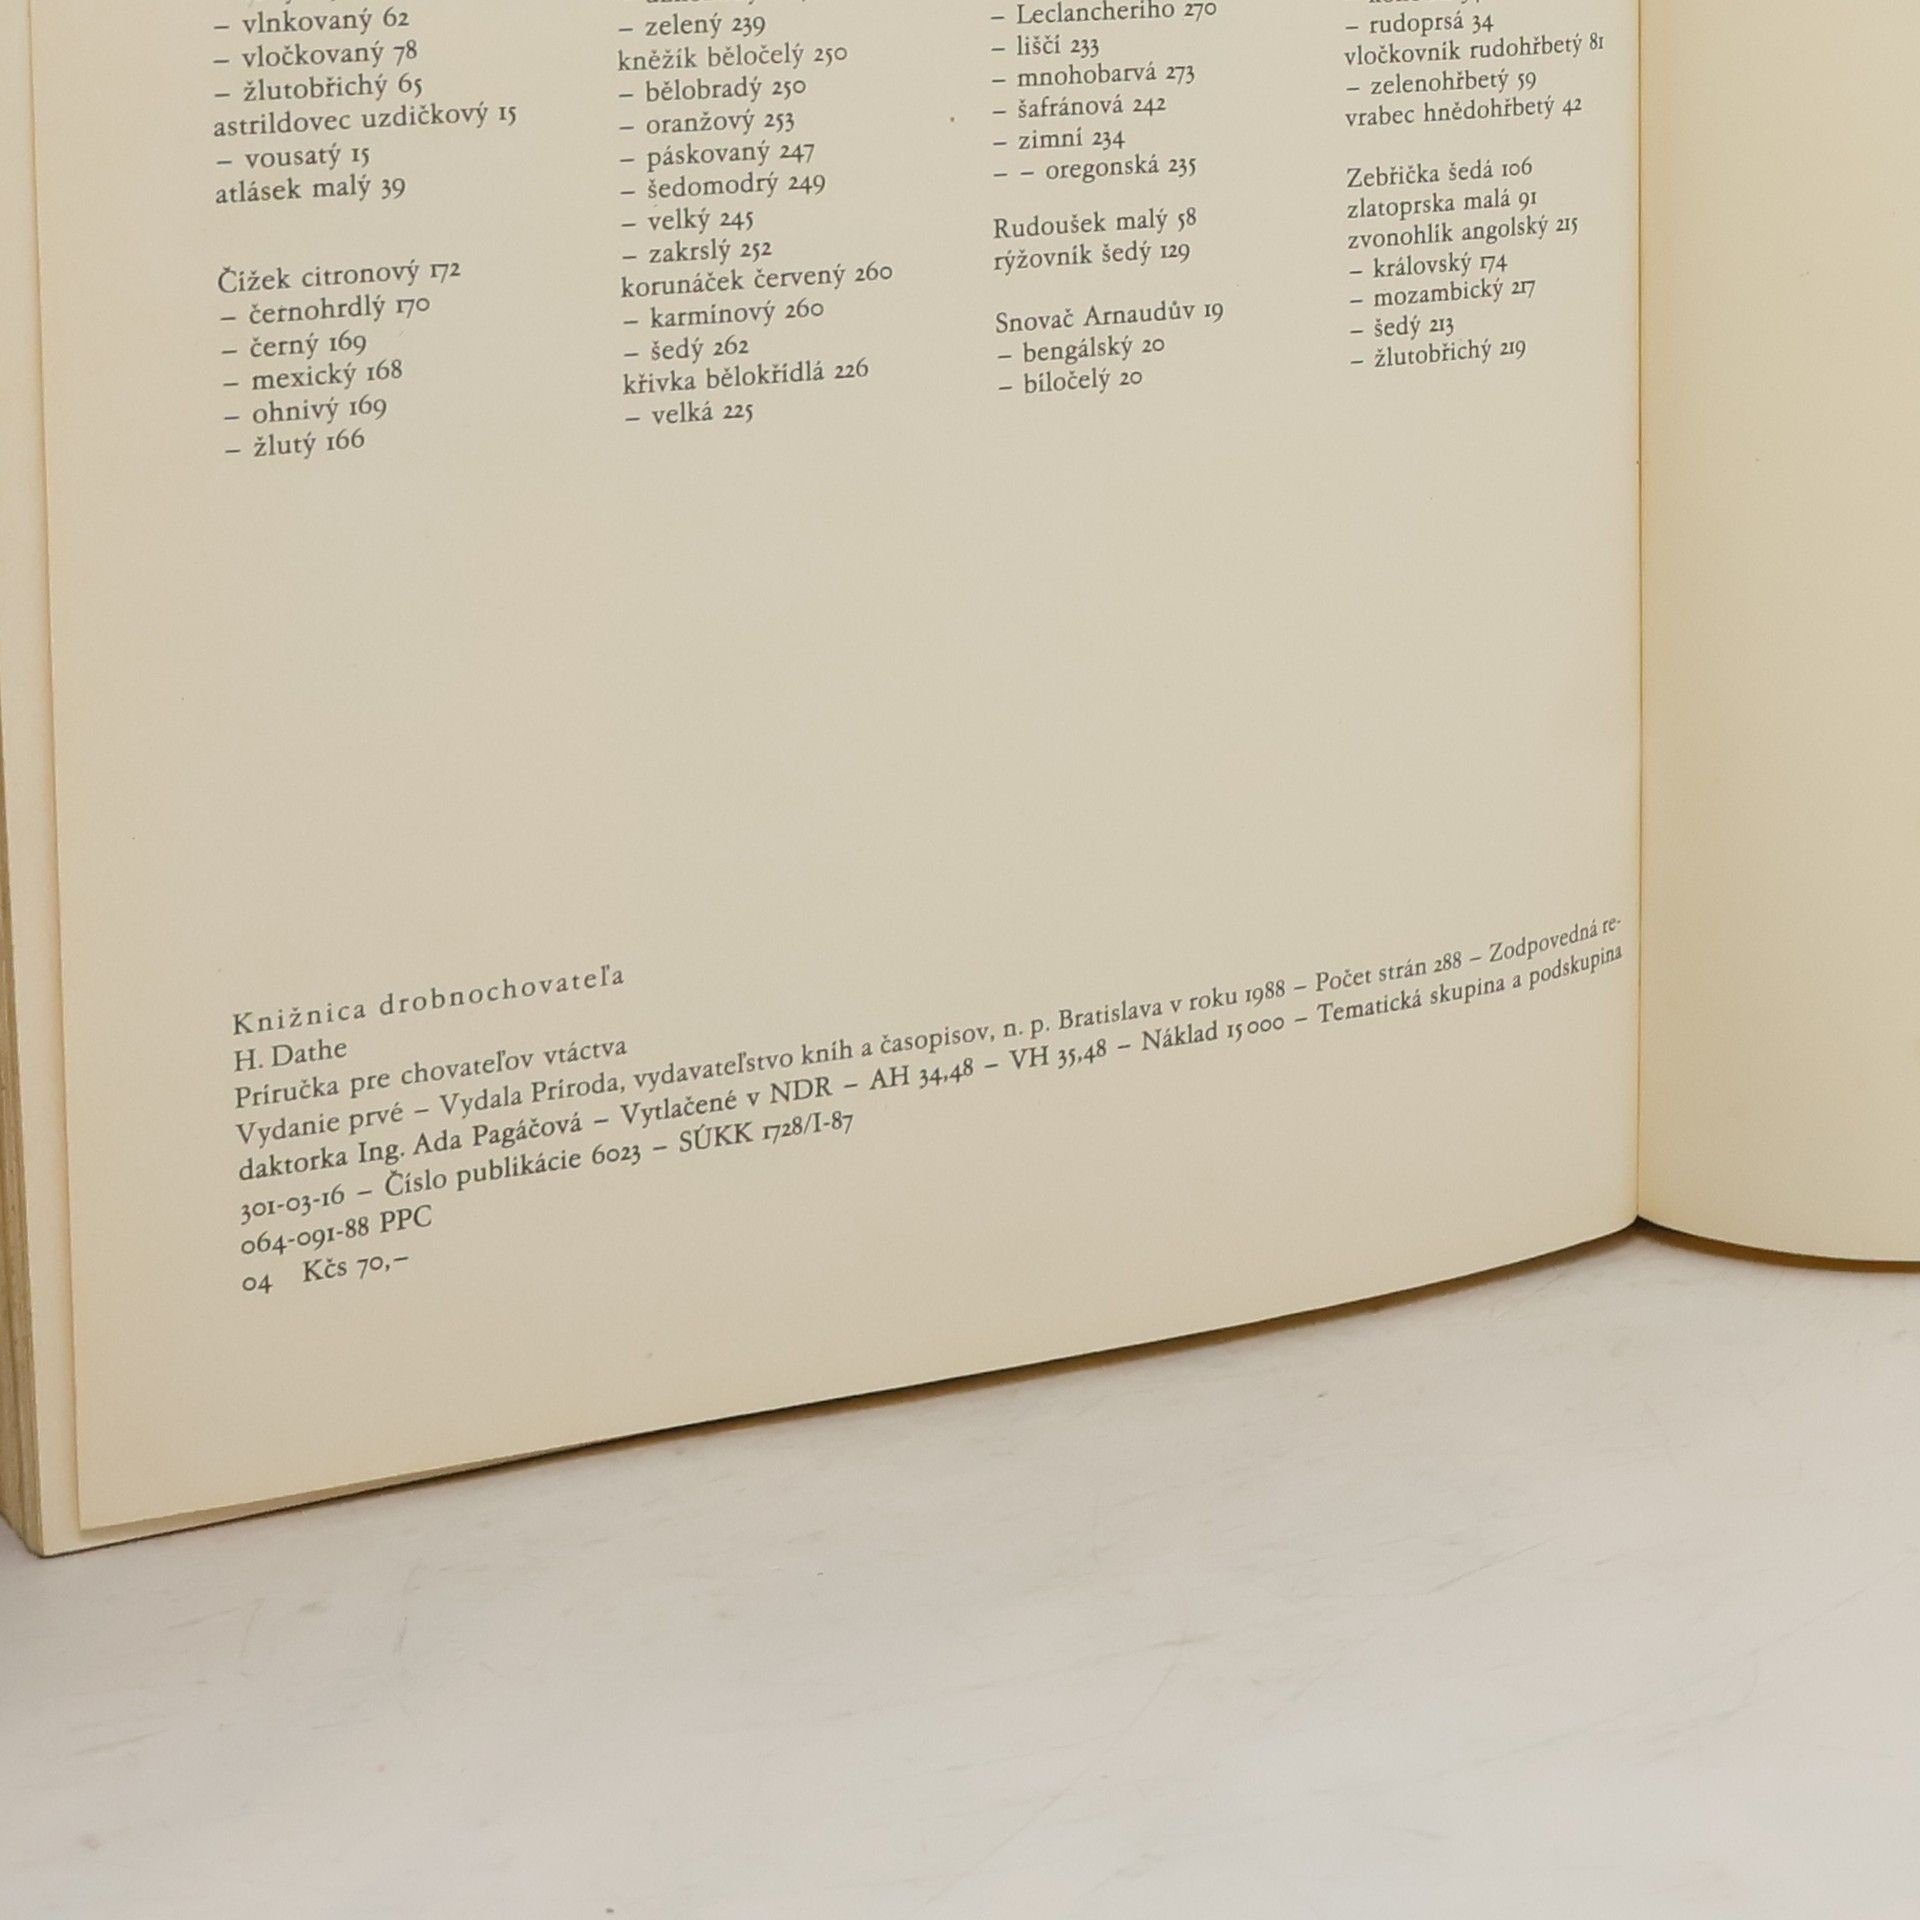 – vlnkovaný 62
– vločkovaný 78
– žlutobřichý 65
astrildovec uzdičkový 15
– vousatý 15
atlásek malý 39
Čížek citronový 172
– černohrdlý 170
– černý 169
– mexický 168
– ohnivý 169
– žlutý 166
– zelený 239
kněžík běločelý 250
– bělobradý 250
– oranžový 253
– páskovaný 247
– šedomodrý 249
– velký 245
– zakrslý 252
korunáček červený 260
– karmínový 260
– šedý 262
křivka bělokřídlá 226
– velká 225
– Leclancheriho 270
– liščí 233
– mnohobarvá 273
– šafránová 242
– zimní 234
– – oregonská 235
Rudoušek malý 58
rýžovník šedý 129
Snovač Arnaudův 19
– bengálský 20
– bíločelý 20
– rudoprsá 34
vločkovník rudohřbetý 81
– zelenohřbetý 59
vrabec hnědohřbetý 42
Zebřička šedá 106
zlatoprska malá 91
zvonohlík angolský 215
– královský 174
– mozambický 217
– šedý 213
– žlutobřichý 219
Knižnica drobnochovateľa
H. Dathe
Príručka pre chovateľov vtáctva
Vydanie prvé – Vydala Príroda, vydavateľstvo kníh a časopisov, n. p. Bratislava v roku 1988 – Počet strán 288 – Zodpovedná re-
daktorka Ing. Ada Pagáčová – Vytlačené v NDR – AH 34,48 – VH 35,48 – Náklad 15 000 – Tematická skupina a podskupina
301-03-16 – Číslo publikácie 6023 – SÚKK 1728/I-87
064-091-88 PPC
04 Kčs 70,–